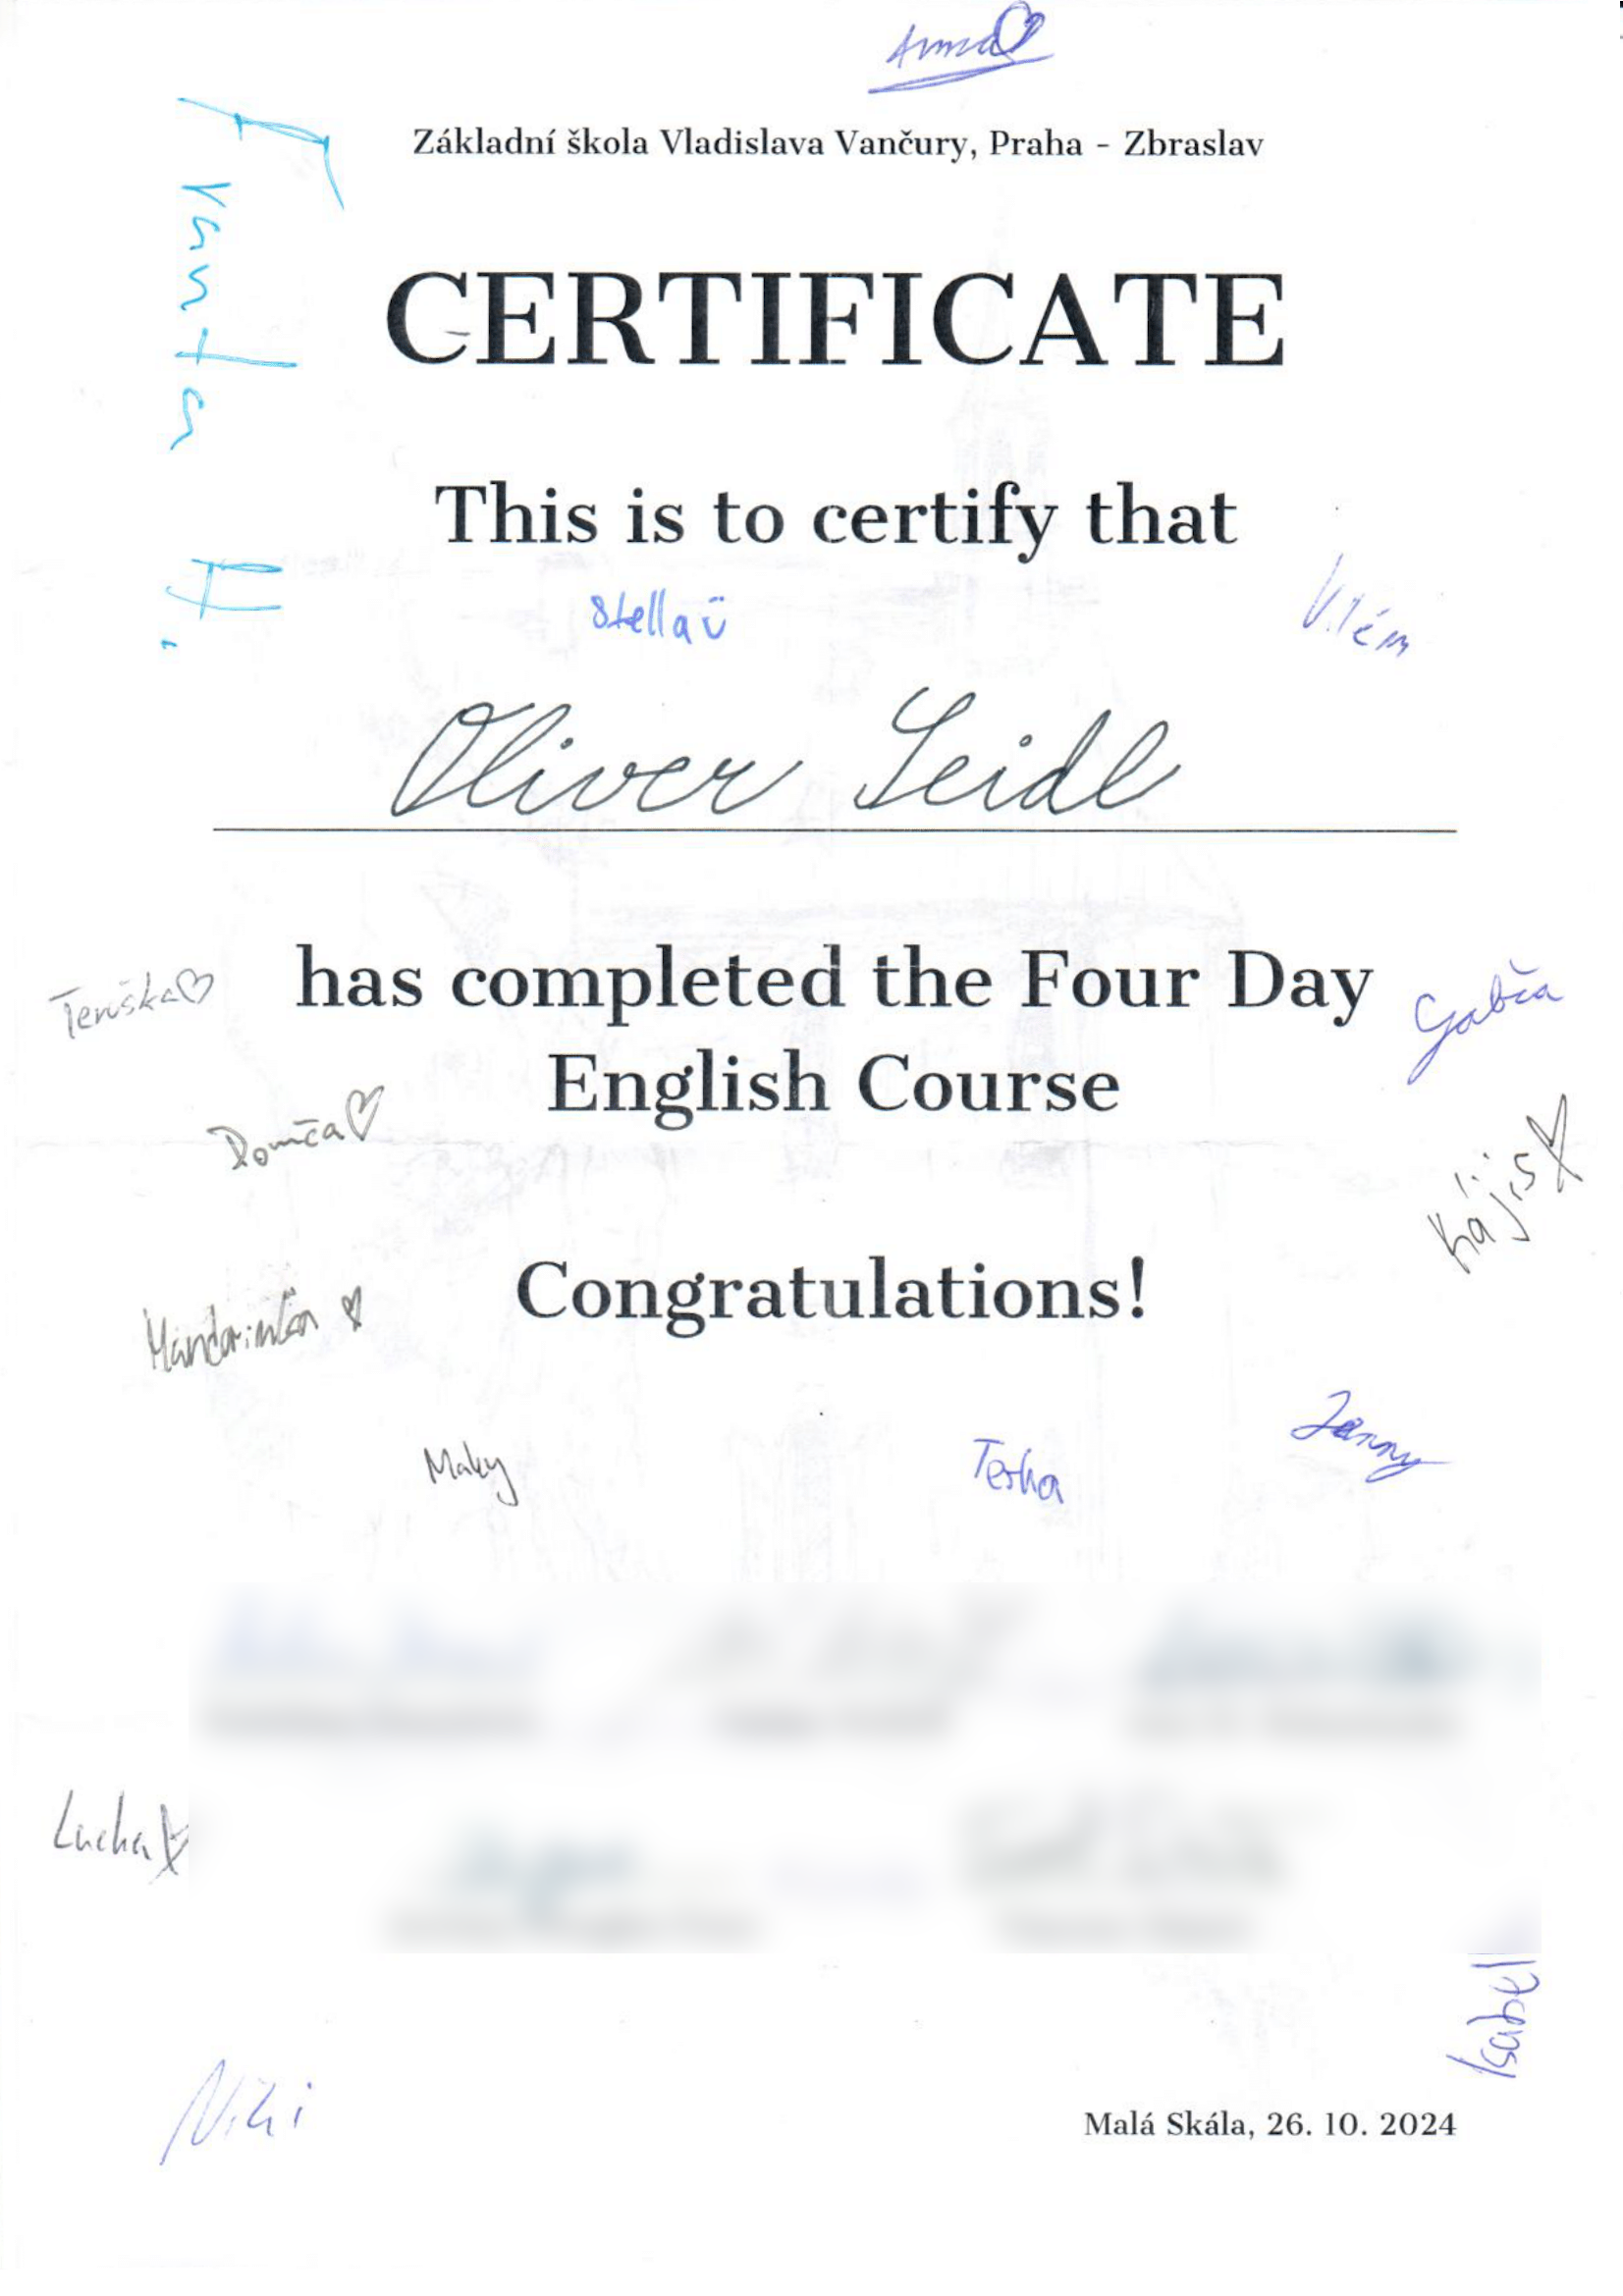 Anna
Základní škola Vladislava Vančury, Praha - Zbraslav
Franta H.
CERTIFICATE
This is to certify that
Stella ü
Vilém
Oliver Seidl
has completed the Four Day
English Course
Teruška
Gabča
Domča
Kájis
Congratulations!
Maky
Terka
Janny
Lucka
Isabel
Niki
Malá Skála, 26. 10. 2024